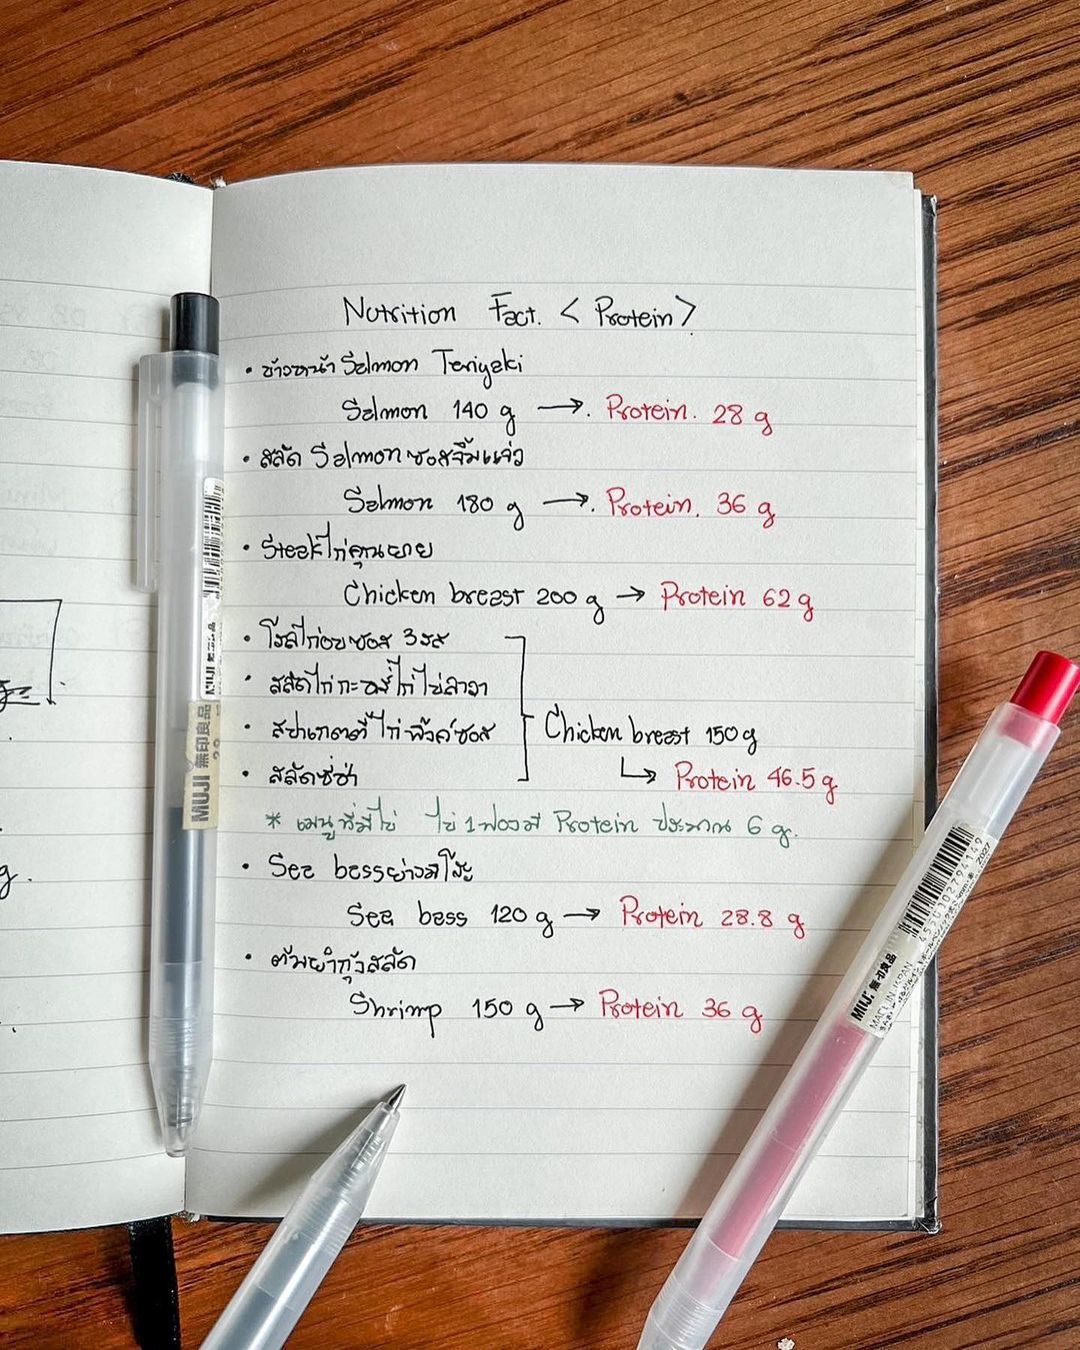 Nutrition Fact. < Protein >
• ข้าวหน้า Salmon Teriyaki
Salmon 140 g → Protein. 28 g
• สลัด Salmon ซอสจิ้มแจ่ว
Salmon 180 g → Protein. 36 g
• Steak ไก่คุณยาย
Chicken breast 200 g → Protein 62 g
• โรลไก่อบซอส 3 รส
• สลัดไก่กะหรี่ไก่ไข่ลาวา
• สปาเกตตี้ไก่พิ้งค์ซอส
• สลัดซีซ่า
Chicken breast 150 g
↳ Protein 46.5 g
* เมนูที่มีไข่ ไข่ 1 ฟองมี Protein ประมาณ 6 g.
• Sea bass ย่างมิโซะ
Sea bass 120 g → Protein 28.8 g
• ต้มยำกุ้งสลัด
Shrimp 150 g → Protein 36 g
MUJI 無印良品
MUJI 無印良品
MADE IN JAPAN